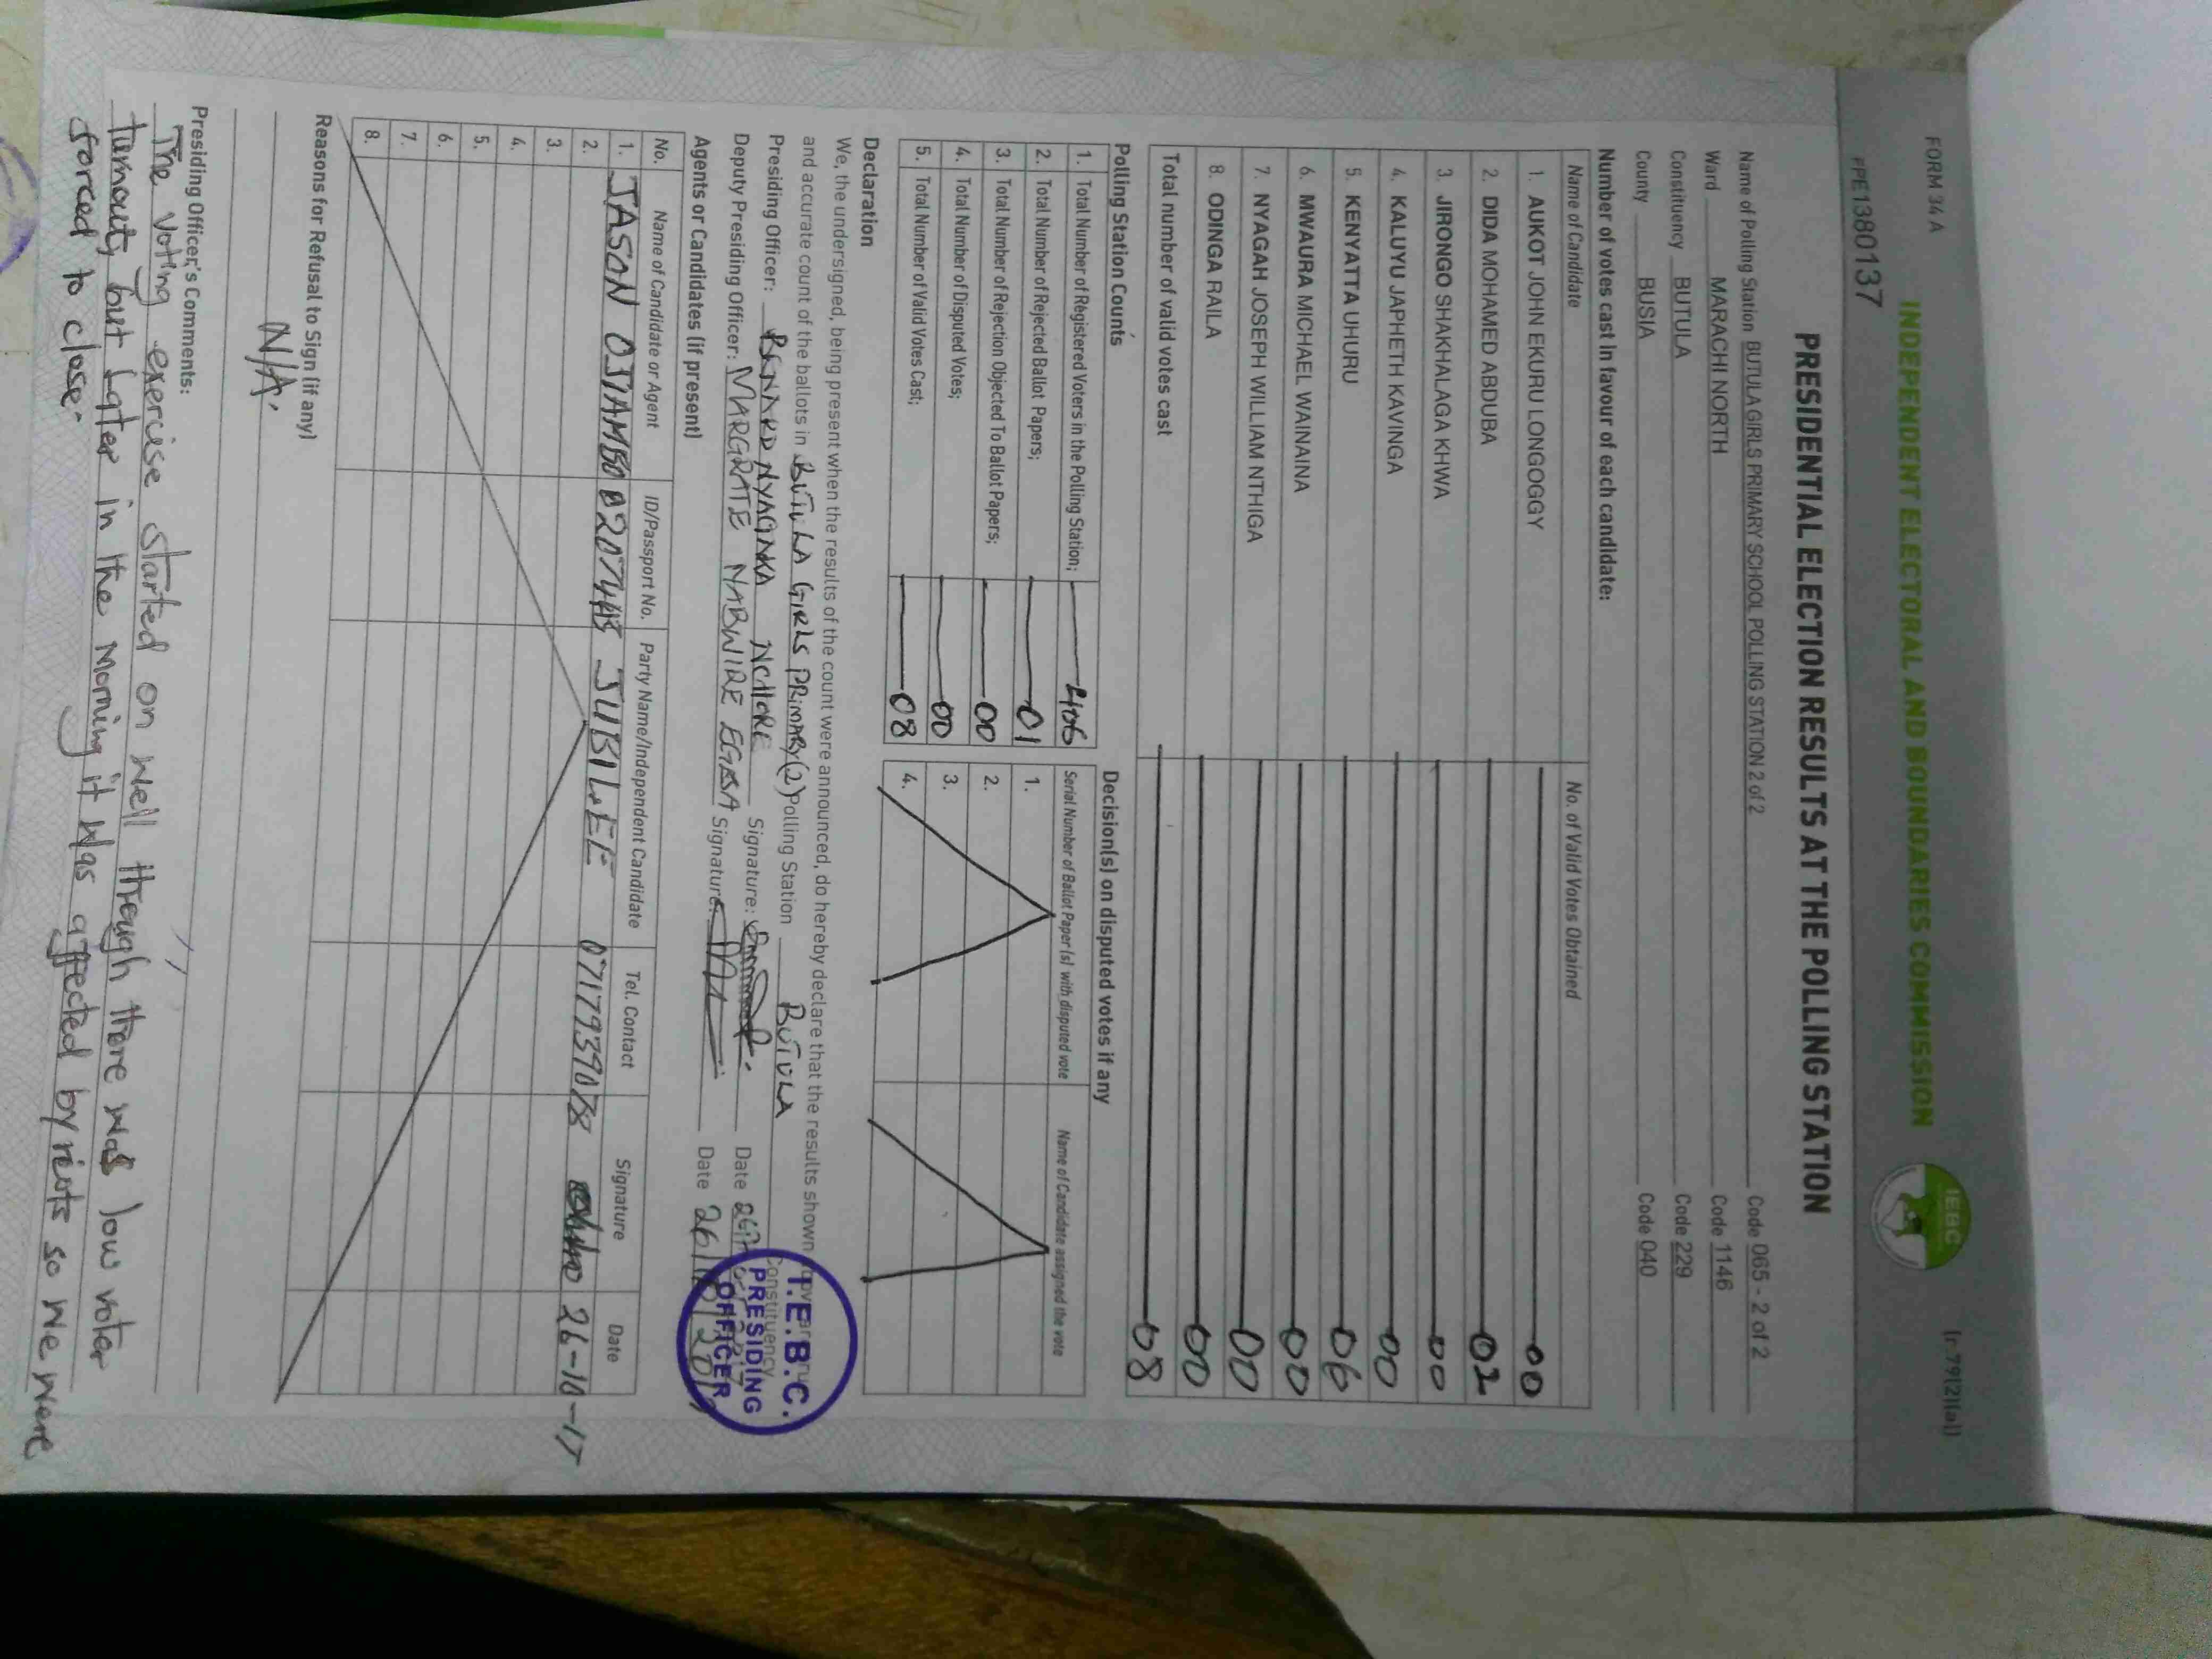 FORM 34A
(r.79(2)(a))
INDEPENDENT ELECTORAL AND BOUNDARIES COMMISSION
IEBC
PPE1380137
PRESIDENTIAL ELECTION RESULTS AT THE POLLING STATION
Name of Polling Station BUTULA GIRLS PRIMARY SCHOOL POLLING STATION 2 of 2 Code 065 - 2 of 2
Ward MARACHI NORTH Code 1146
Constituency BUTULA Code 229
County BUSIA Code 040
Number of votes cast in favour of each candidate:
Name of Candidate No. of Valid Votes Obtained
1. AUKOT JOHN EKURU LONGOGGY 00
2. DIDA MOHAMED ABDUBA 02
3. JIRONGO SHAKHALAGA KHWA 00
4. KALUYU JAPHETH KAVINGA 00
5. KENYATTA UHURU 06
6. MWAURA MICHAEL WAINAINA 00
7. NYAGAH JOSEPH WILLIAM NTHIGA 00
8. ODINGA RAILA 00
Total number of valid votes cast 08
Polling Station Counts
1. Total Number of Registered Voters in the Polling Station; 406
2. Total Number of Rejected Ballot Papers; 01
3. Total Number of Rejection Objected To Ballot Papers; 00
4. Total Number of Disputed Votes; 00
5. Total Number of Valid Votes Cast; 08
Decision(s) on disputed votes if any
Serial Number of Ballot Paper (s) with disputed vote Name of Candidate assigned the vote
1.
2.
3.
4.
Declaration
We, the undersigned, being present when the results of the count were announced, do hereby declare that the results shown above are true
and accurate count of the ballots in BUTULA GIRLS PRIMARY (2) Polling Station BUTULA Constituency
Presiding Officer: NYAGAKA Signature: Date
Deputy Presiding Officer: MARGRATE NABWIRE EGESA Signature: Date 26/10/2017
I.E.B.C.
PRESIDING
OFFICER
Agents or Candidates (if present)
No. Name of Candidate or Agent ID/Passport No. Party Name/Independent Candidate Tel. Contact Signature Date
1. JASON OJIAMBO JUBILEE 0717939078 26-10-17
2.
3.
4.
5.
6.
7.
8.
Reasons for Refusal to Sign (if any)
N/A.
Presiding Officer's Comments:
The voting exercise started on well through there was low voter
turnout, but later in the morning it was affected by riots so we were
forced to close.